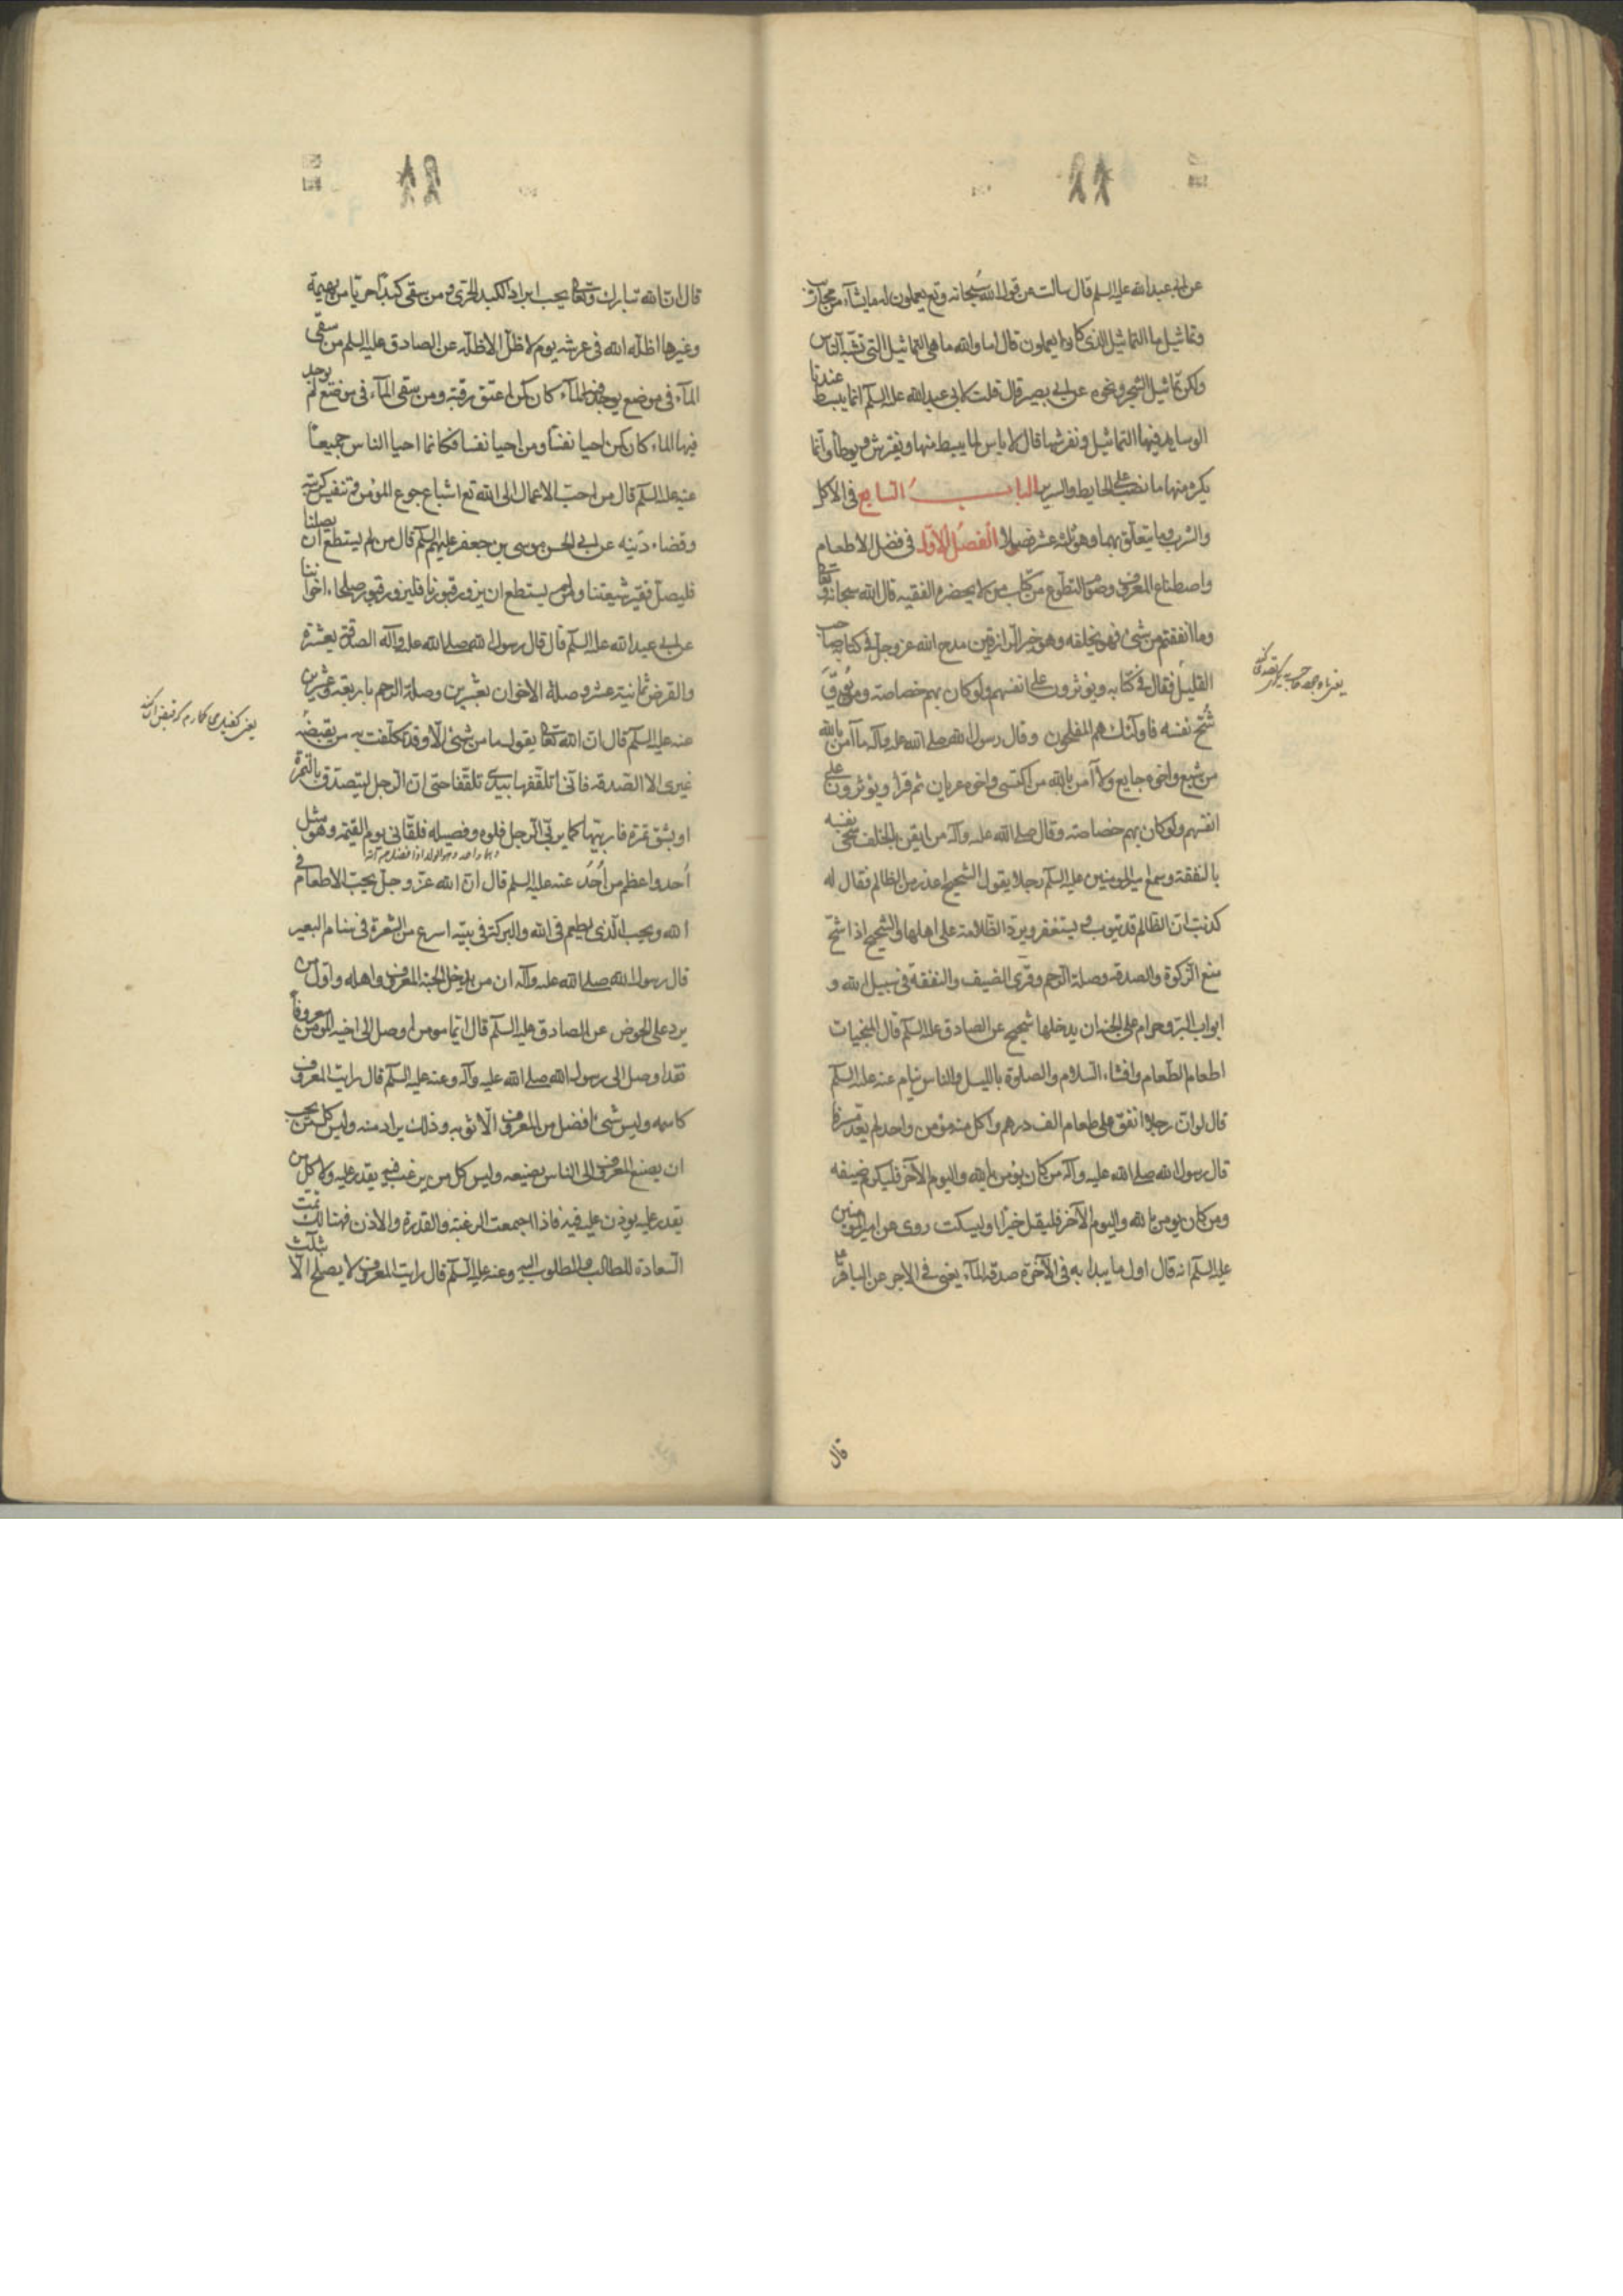 عن ابى عبد الله عليه السلم قال سالت عن قول الله سبحانه وتع يعملون له ما يشآء من محاريب
وتماثيل ما التماثيل الذى كانوا يعملون قال اما والله ما هى التماثيل التى تشبه الناس
ولكن تماثيل الشجر ونحوه عن ابى بصير قال قلت لابى عبد الله عليه السلم انما يبسط عندنا
الوسايد فيها التماثيل ونفرشها قال لا باس لما يبسط منها ويفترش ويوطأ وانما
يكره منها ما نصب على الحايط والسرير الباب السابع فى الاكل
والشرب وما يتعلق بهما وهو ثلثه عشر فصولا الفصل الاول فى فضل الاطعام
واصطناع المعروف وصوم التطوع من كتاب من لا يحضره الفقيه قال الله سبحانه وتعالى
وما انفقتم من شئ فهو يخلفه وهو خير الرازقين مدح الله عز وجل فى كتابه صاحب
القليل فقال فى كتابه ويوثرون على انفسهم ولو كان بهم خصاصة ومن يوق
شح نفسه فاولئك هم المفلحون وقال رسول الله صلى الله عليه وآله ما آمن بالله
من شبع واخوه جايع ولا آمن بالله من اكتسى واخوه عريان ثم قرأ ويوثرون على
انفسهم ولو كان بهم خصاصة وقال صلى الله عليه وآله من ايقن بالخلف سخى نفسه
بالنفقة وسمع امير المومنين عليه السلم رجلا يقول الشحيح اعذر من الظالم فقال له
كذبت ان الظالم قد يتوب ويستغفر ويرد الظلامة على اهلها والشحيح اذا شح
منع الزكوة والصدقه وصلة الرحم وقرى الضيف والنفقة فى سبيل الله و
ابواب البر وحرام على الجنة ان يدخلها شحيح عن الصادق عليه السلم قال المنجيات
اطعام الطعام وافشاء السلام والصلوة بالليل والناس نيام عنه عليه السلم
قال لو ان رجلا انفق على طعام الف درهم واكل منه مؤمن واحد لم يعد مسرفا
قال رسول الله صلى الله عليه وآله من كان يؤمن بالله واليوم الآخر فليكرم ضيفه
ومن كان يومن بالله واليوم الآخر فليقل خيرا او ليسكت روى عن امير المومنين
عليه السلم انه قال اول ما يبدا به فى الآخرة صدقة المآء يعنى فى الاجر عن الباقر ع
قال
قال ان الله تبارك وتعالى يحب ابراد الكبد الحرى ومن سقى كبدا حريا من بهيمة
وغيرها اظله الله فى عرشه يوم لا ظل الا ظله عن الصادق عليه السلم من سقى
المآء فى موضع يوجد فيه المآء كان كمن اعتق رقبة ومن سقى المآء فى موضع لم يوجد
فيها الماء كان كمن احيا نفسا ومن احيا نفسا فكانما احيا الناس جميعا
عنه عليه السلم قال من احب الاعمال الى الله تع اشباع جوع المؤمن وتنفيس كربته
وقضاء دينه عن ابى الحسن موسى بن جعفر عليهم السلم قال من لم يستطع ان يصلنا
فليصل فقير شيعتنا ومن لم يستطع ان يزور قبورنا فليزور قبور صلحاء اخواننا
عن ابى عبد الله عليه السلم قال قال رسول الله صلى الله عليه وآله الصدقة بعشرة
والقرض ثمانية عشر وصلة الاخوان بعشرين وصلة الرحم باربعة وعشرين
عنه عليه السلم قال ان الله تعالى يقول ما من شئ الا وقد تكلفت به من يقبضه
غيرى الا الصدقه فانى اتلقفها بيدى تلقفا حتى ان الرجل ليتصدق بالتمرة
او بشق تمرة فاربيها كما يربى الرجل فلوه وفصيله فلقانى يوم القيمة وهو مثل
احد واعظم من احد عنه عليه السلم قال ان الله عز وجل يحب الاطعام فى
الله ويحب الذى يطعم فى الله والبركة فى بيته اسرع من الشفرة فى سنام البعير
قال رسول الله صلى الله عليه وآله ان من يدخل الجنة المعروف واهله واول من
يرد على الحوض عن الصادق عليه السلم قال ايما مومن اوصل الى اخيه المومن معروفا
فقد اوصل الى رسول الله صلى الله عليه وآله وعنه عليه السلم قال رايت المعروف
كاسمه وليس شئ افضل من المعروف الا ثوابه وذلك يراد منه وليس كل من يحب
ان يصنع المعروف الى الناس يصنيعه وليس كل من يرغب فيه يقدر عليه ولا كل من
يقدر عليه يوذن عليه فيه فاذا اجتمعت الرغبة والقدرة والاذن فهنالك تمت
السعادة للطالب والمطلوب اليه وعنه عليه السلم قال رايت المعروف لا يصلح الا بثلث